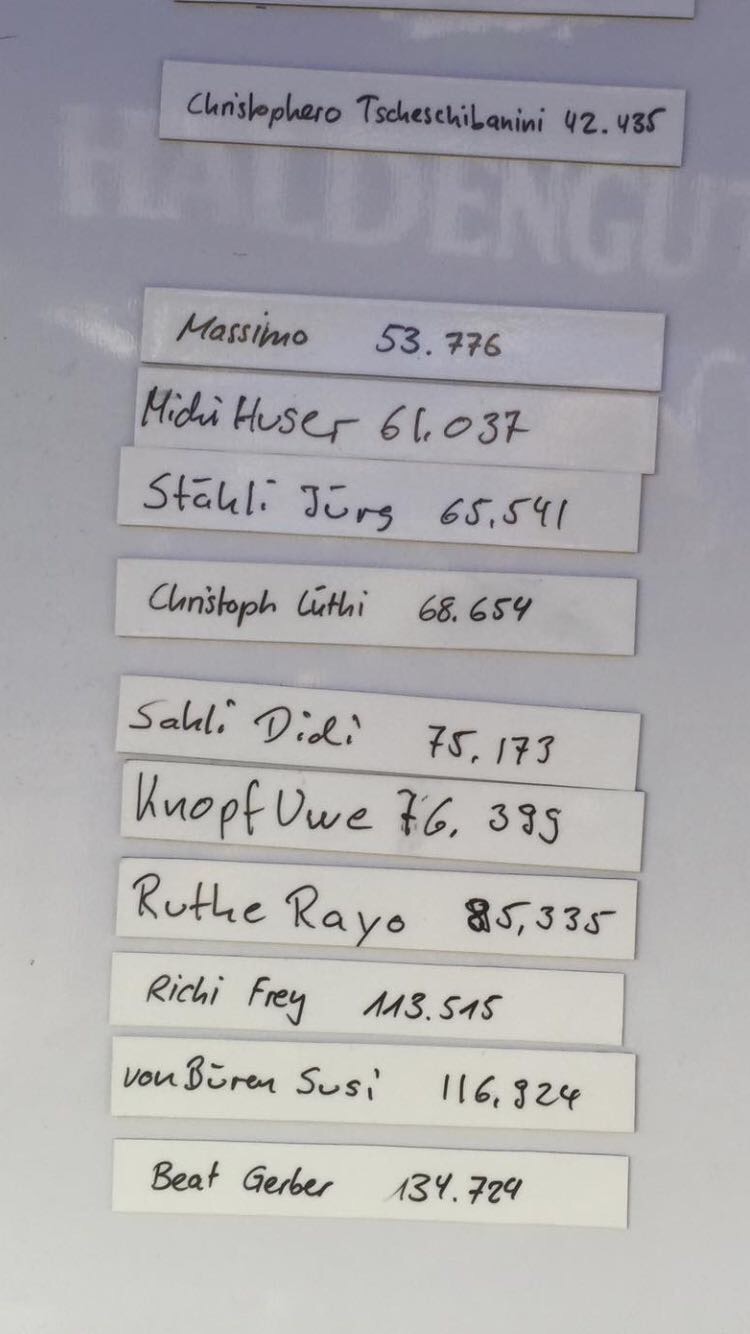 Christophero Tscheschibanini 42.435
HALDENGUT
Massimo 53.776
Michi Huser 61.037
Stähli Jürg 65,541
Christoph Lüthi 68.654
Sahli Didi 75.173
Knopf Uwe 76, 399
Ruthe Rayo 85,335
Richi Frey 113.515
von Büren Susi 116,924
Beat Gerber 134.724